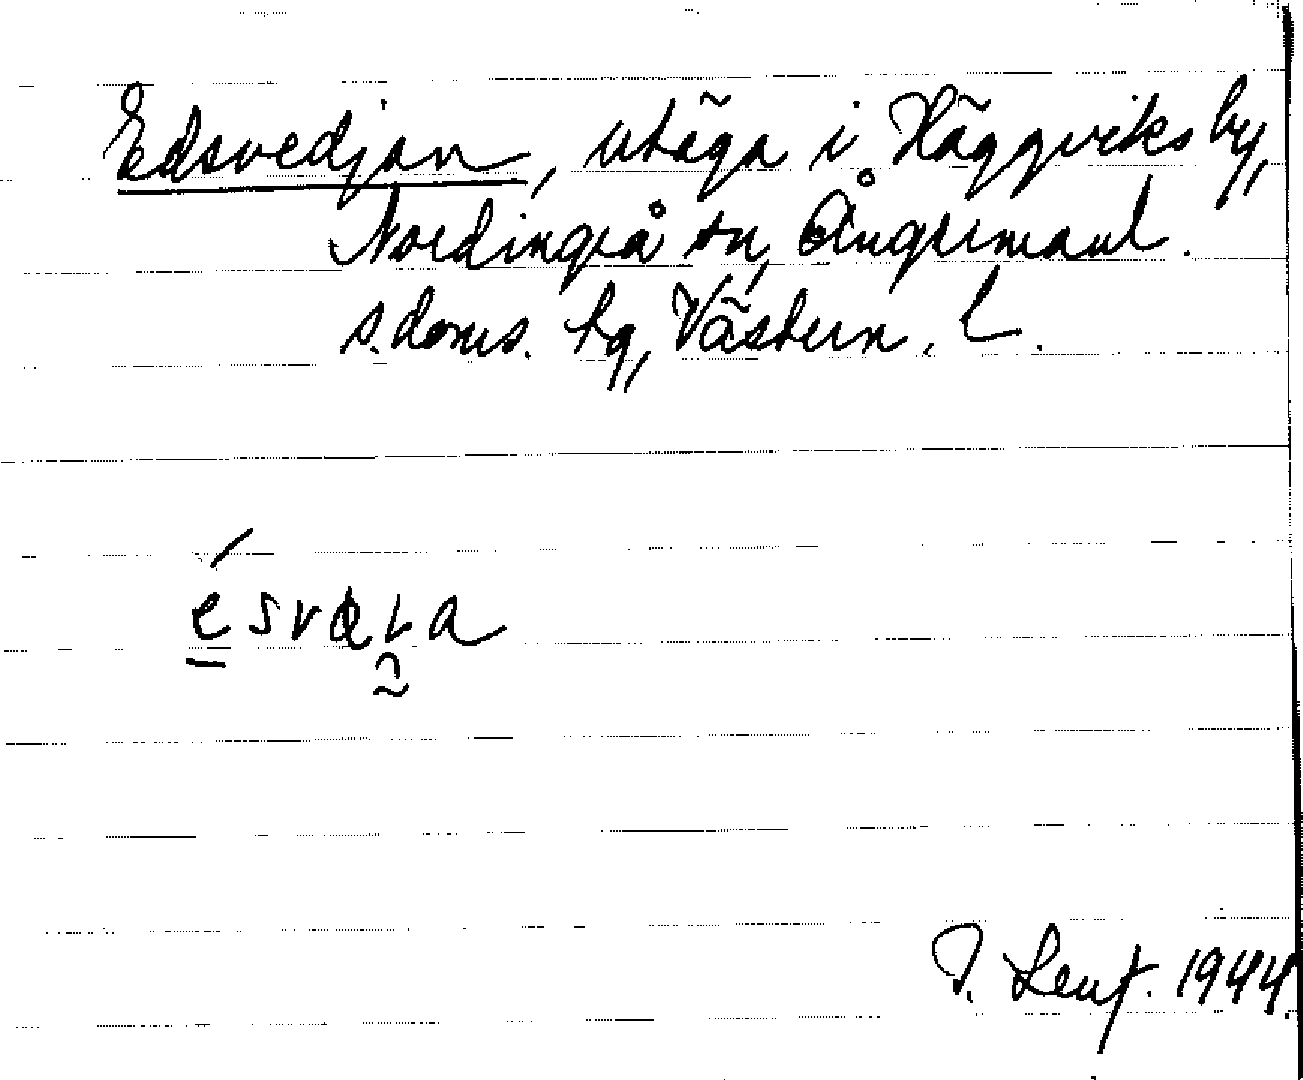 Edsvedjan, utäga i Häggviks by,
Nordingrå sn, Ångermanl.
s. doms. hg, Västern. L.
J. 1944.